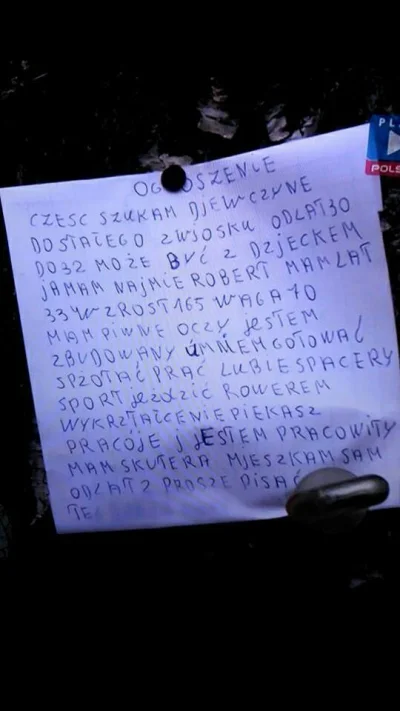 OGŁOSZENIE
CZESC SZUKAM DJEWCZYNE
DO STAŁEGO ZWJOSKU OD LAT 30
DO 32 MOŻE BYĆ Z DZJECKEM
JA MAM NAJMIE ROBERT MAM LAT
33 W ZROST 165 WAGA 70
MAM PIWNE OCZY JESTEM
ZBUDOWANY ÚMNIEM GOTOWAĆ
SPZOTAĆ PRAĆ LUBIE SPACERY
SPORT JEŹDZIĆ ROWEREM
WYKRZTAŁCENIE PIEKASZ
PRACÓJE J JESTEM PRACOWITY
MAM SKUTERA MJESZKAM SAM
OD LAT 2 PROSZE PISAĆ
TE
PL
POLS